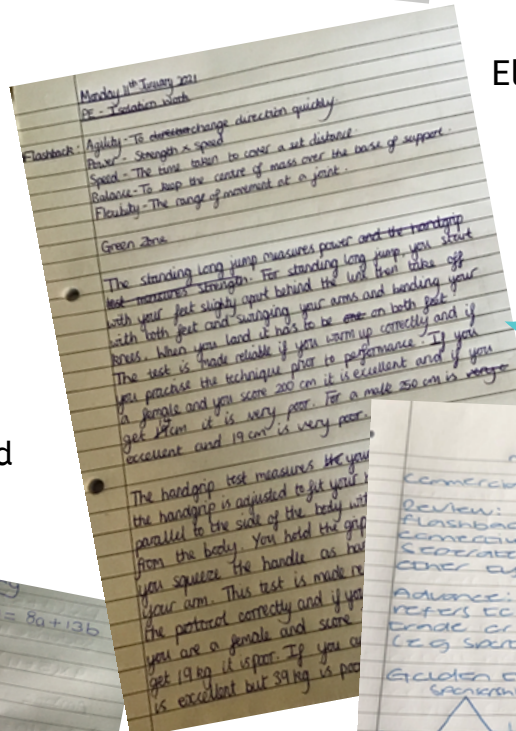 El
d
Monday 11th January 2021
PE - Isolation Work
Flashback: Agility - To change direction quickly
Power - Strength x speed
Speed - The time taken to cover a set distance.
Balance - To keep the centre of mass over the base of support.
Flexibility - The range of movement at a joint.
Green Zone
The standing long jump measures power and the handgrip
test measures strength. For standing long jump, you start
with your feet slighty apart behind the line then take off
with both feet and swinging your arms and bending your
knees. When you land it has to be on both feet.
The test is made reliable if you warm up correctly and if
you practise the technique prior to performance. If you
a female and you score 200 cm it is excellent and if you
get cm it is very poor. For a male 250 cm is
excellent and 19 cm is very poor.
The handgrip test measures your
the handgrip is adjusted to fit your
parallel to the side of the body
from the body. You hold the grip
you squeeze the handle as
your arm. This test is made
the protocol correctly and if
you are a female and score
get 19 kg it is poor. If you
is excellent but 39 kg is
= 8a + 13b
Review:
Advance:
refers to
(e.g
Golden